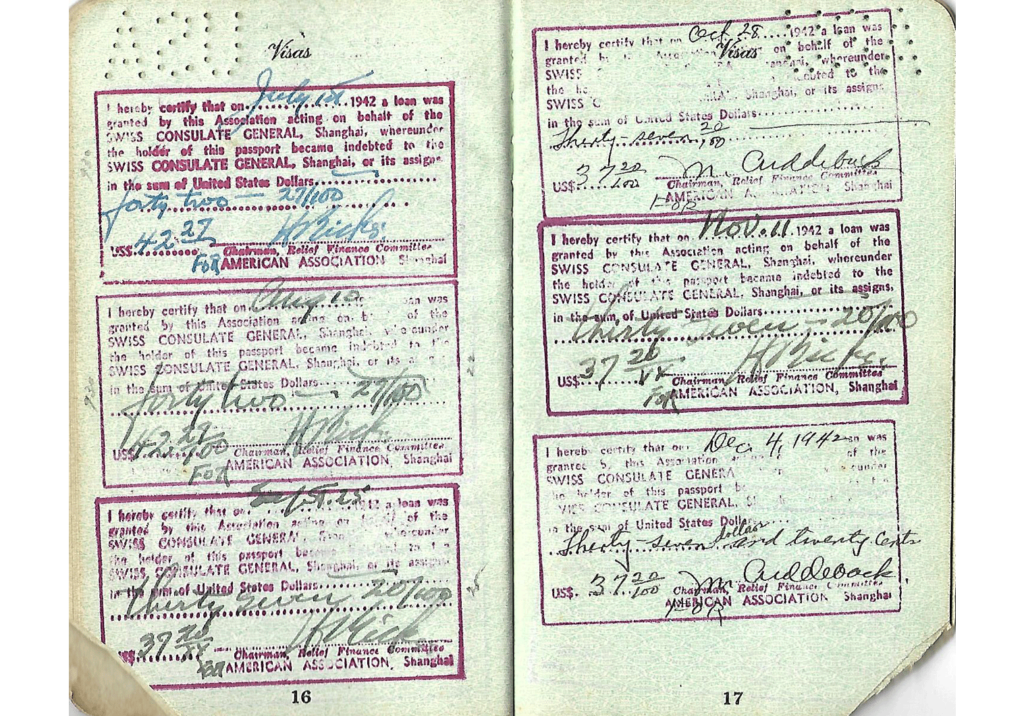 Visas
I hereby certify that on July 1st 1942 a loan was
granted by this Association acting on behalf of the
SWISS CONSULATE GENERAL, Shanghai, whereunder
the holder of this passport became indebted to the
SWISS CONSULATE GENERAL, Shanghai, or its assigns
in the sum of United States Dollars
forty two — 27/100
US$ 42 27
Chairman, Relief Finance Committee
FOR AMERICAN ASSOCIATION Shanghai
I hereby certify that on Aug 10 loan was
granted by this Association acting on of the
SWISS CONSULATE GENERAL, Shanghai,
the holder of this passport became indebted to the
SWISS CONSULATE GENERAL, Shanghai, or its
in the sum of United States Dollars
forty two — 27/100
US$ 42 27/100
Chairman, Relief Finance Committee
FOR AMERICAN ASSOCIATION, Shanghai
I hereby certify that on 1942 a loan was
granted by this Association acting on behalf of the
SWISS CONSULATE GENERAL, whereunder
the holder of this passport became indebted to the
SWISS CONSULATE GENERAL, Shanghai, or its assigns
in the sum of United States Dollars
Thirty seven 20/100
US$ 37 20
Chairman, Relief Finance Committee
FOR AMERICAN ASSOCIATION, Shanghai
16
Visas
I hereby certify that on Oct 28 1942 a loan was
granted by this Association on behalf of the
SWISS whereunder
the indebted to the
SWISS C Shanghai, or its assigns
in the sum of United States Dollars
Thirty-seven 20/100
US$ 37 20/100 M. Cuddeback
Chairman, Relief Finance Committee
FOR AMERICAN Shanghai
I hereby certify that on Nov. 11 1942 a loan was
granted by this Association acting on behalf of the
SWISS CONSULATE GENERAL, Shanghai, whereunder
the holder of the passport became indebted to the
SWISS CONSULATE GENERAL, Shanghai, or its assigns,
in the sum of United States Dollars
Thirty seven — 20/100
US$ 37 20
Chairman, Relief Finance Committee
FOR AMERICAN ASSOCIATION, Shanghai
I hereby certify that on Dec 4, 1942 loan was
granted by this Association of the
SWISS CONSULATE GENERA
the holder of this passport
SWISS CONSULATE GENERAL,
in the sum of United States Dollars
Thirty-seven dollars and twenty cents
US$. 37 20/100 M. Cuddeback
Chairman, Relief Finance Committee
FOR AMERICAN ASSOCIATION Shanghai
17